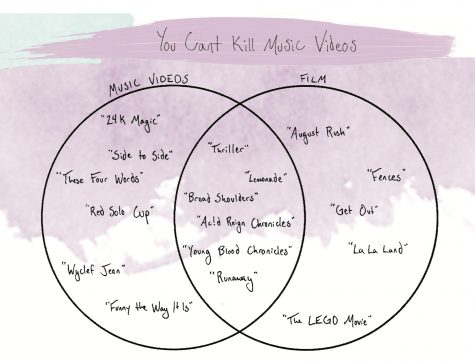 You Cant Kill Music Videos
MUSIC VIDEOS
FILM
"24K Magic"
"Side to Side"
"These Four Words"
"Red Solo Cup"
"Wyclef Jean"
"Funny the Way It Is"
"Thriller"
"Lemonade"
"Broad Shoulders"
"Ac!d Reign Chronicles"
"Young Blood Chronicles"
"Runaway"
"August Rush"
"Fences"
"Get Out"
"La La Land"
"The LEGO Movie"